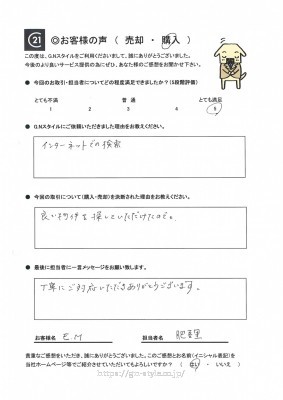 21 ◎お客様の声 ( 売却 ・ 購入 )
この度は、G.Nスタイルをご利用くださいまして、誠にありがとうございました。
今後のより良いサービス提供の為にぜひ、あなた様のご感想をお聞かせ下さい。
● 今回のお取引・担当者についてどの程度満足できましたか?(5段階評価)
とても不満 普 通 とても満足
1 2 3 4 5
● G.Nスタイルにご依頼いただきました理由をお教えください。
インターネットでの検索
● 今回の取引について(購入・売却)を決断された理由をお教えください。
良い物件を探していただけたので。
● 最後に担当者に一言メッセージをお願い致します。
丁寧にご対応いただきありがとうございます。
お客様名 E.M 担当者名 肥喜里
貴重なご感想をいただき、誠にありがとうございました。このご感想とお名前(イニシャル表記)を
当社ホームページ等でご紹介させていただいてもよろしいですか? ( はい ・ いいえ )